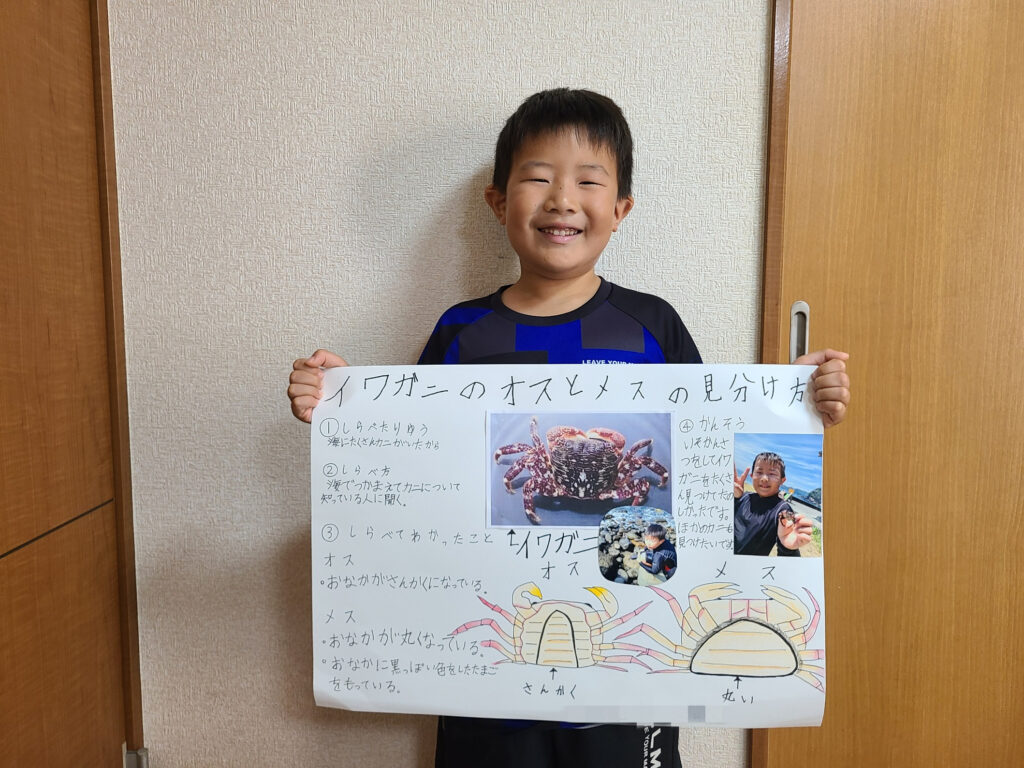 LEAVE YOUR
イワガニのオスとメスの見分け方
①しらべたりゆう
海にたくさんカニがいたから
②しらべ方
海でつかまえてカニについて
知っている人に聞く。
③しらべてわかったこと
オス
・おなかがさんかくになっている。
メス
・おなかが丸くなっている。
・おなかに黒っぽい色をしたたまご
をもっている。
イワガニ
④かんそう
いそかんさ
つをしてイワ
ガニをたくさ
ん見つけてたの
しかったです。
ほかのカニも
見つけたいです
オス
さんかく
メス
丸い